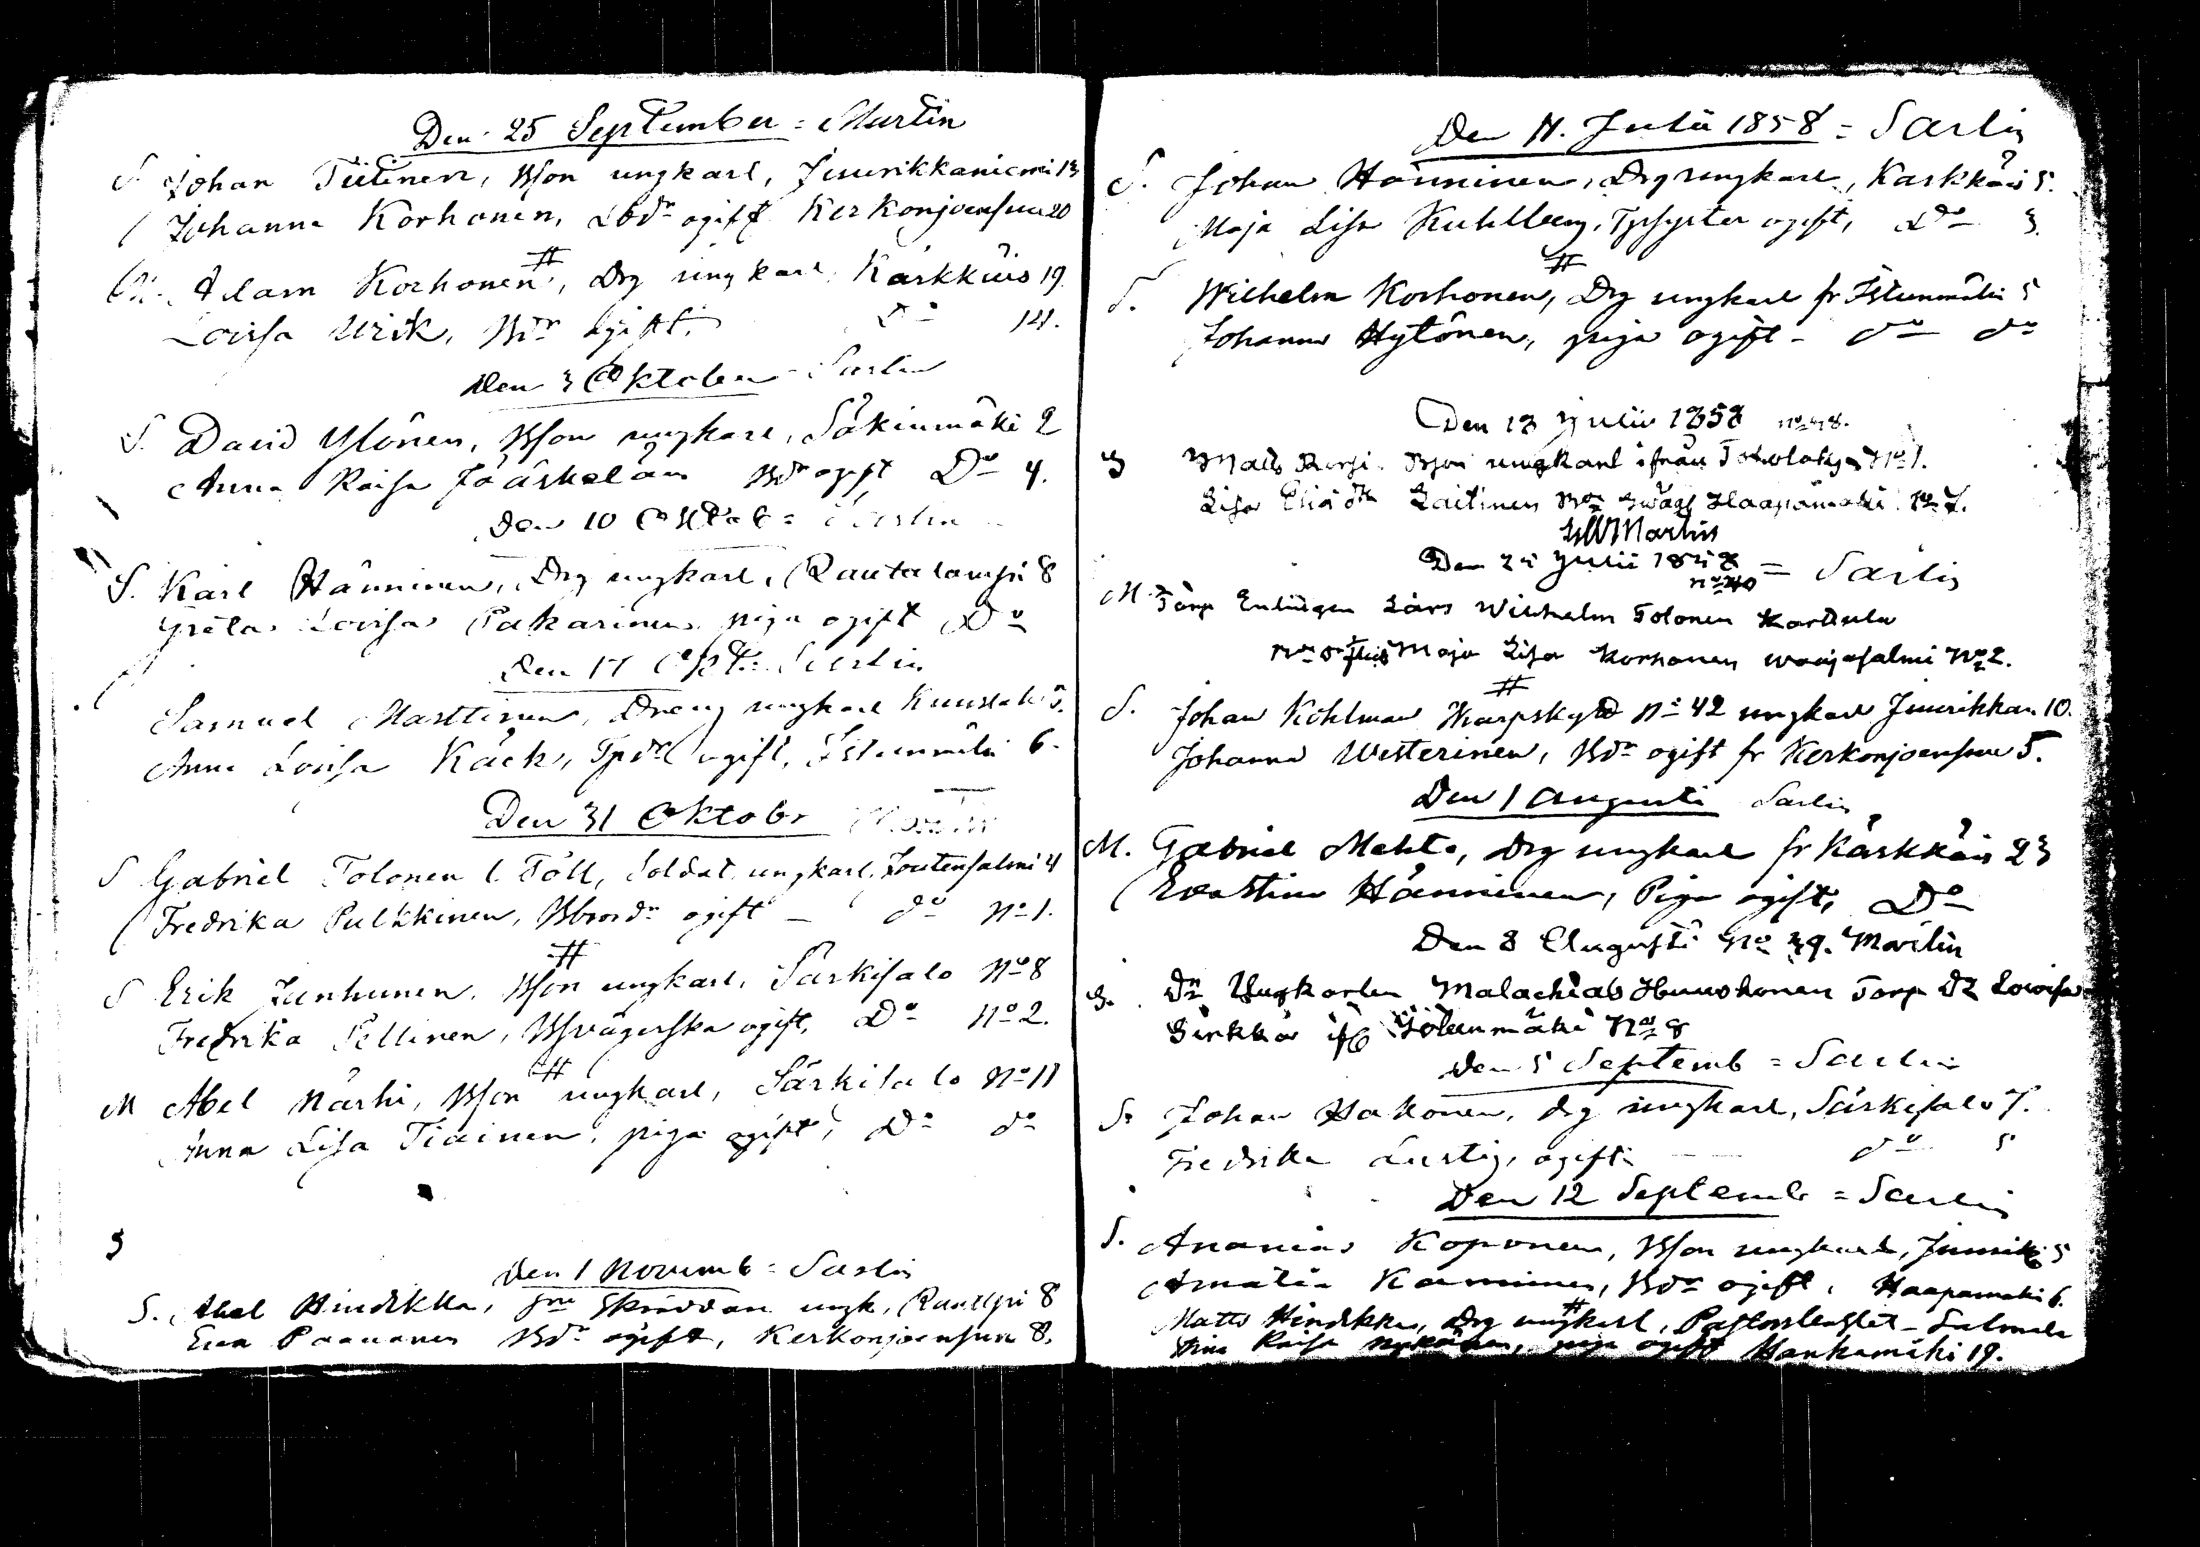 Den 25 September = Martin
S Johan Tiitinen, Bson ungkarl, Jouurikkaniemi 13
Johanna Korhonen, Lbdr ogift Kerkonjoensuu 20
#
M. Adam Korhonen, Drg ungkarl, Kärkkäis 19.
Lovisa Wiik, Bdr ogift, Do 14.
Den 3 Oktober - Sarlin
S. David Ylönen, Bson ungkarl, Säkinmäki 2
Anna Kaisa Jääskeläin Bdr ogift Do 4.
Den 10 Oktob = Sarlin
S. Karl Hänninen, Drg ungkarl, Rautalampi 8
Greta Lovisa Pakarinen piga ogift Do
Den 17 Okt = Sarlin
Samuel Marttinen, Dreng ungkarl 5.
Anna Lovisa Käck, Tpdr ogift, Istunmäki 6.
Den 31 Oktobr Martin
S Gabriel Tolonen l. Töll, Soldat ungkarl, Joutensalmi 4
Fredrika Pulkkinen, Bbrordr ogift - do No 1.
#
S Erik Janhunen, Bson ungkarl, Särkisalo No 8
Fredrika Pellinen, Bsvägerska ogift, Do No 2.
#
M Abel Närhi, Bson ungkarl, Särkisalo No 11
Anna Lisa Tiainen, piga ogift, Do do
S
Den 1 Novemb = Sarlin
S. Abel Hindikka, Skräddare ungk, Rautlpi 8
Eva Paananen Bdr ogift, Kerkonjoensuu 8.
Den 11. Julii 1858 = Sarlin
S. Johan Hänninen, Drg ungkarl, Karkkäis 5.
Maja Lisa Kuhlberg, Tpsyster ogift, Do 3.
#
S. Wilhelm Korhonen, Drg ungkarl fr Istunmäki 5
Johanna Hytönen, piga ogift - do do
Den 18 Julii 1858 No 48.
S Matts Bson ungkarl ifrån No 1.
Lisa Laitinen Haapamäki No 7.
Martin
Den 25 Julii 1858 = Sarlin
No 40
M. Torp Enklingen Lars Wilhelm Tolonen Karttula
Maja Lisa Korhonen No 2.
#
S. Johan Kohlman Skarpskytt No 42 ungkarl Jouurikkan 10.
Johanna Westerinen, Bdr ogift fr Kerkonjoensuu 5.
Den 1 Augusti Sarlin
M. Gabriel Mehto, Drg ungkarl fr Kärkkäis 23
Eva Stina Hänninen, Piga ogift, Do
Den 8 Augusti No 39. Martin
S. Dr Ungkarlen Malachias Huuskonen Torp Dr Lowisa
Sirkka No 8
Den 5 Septemb = Sarlin
S. Johan Hakonen, drg ungkarl, Särkisalo 7.
Fredrika Lustig, ogift - do 5
Den 12 Septemb = Sarlin
S. Ananias Koponen, Bson ungkarl, Jouurik 5
Amalia Kauninen, Bdr ogift, Haapamäki 6.
#
Matts Hindikka, Drg ungkarl, Pastorsbostlet - Salmela
Stina Kaisa Nykänen, piga ogift Hankamäki 19.